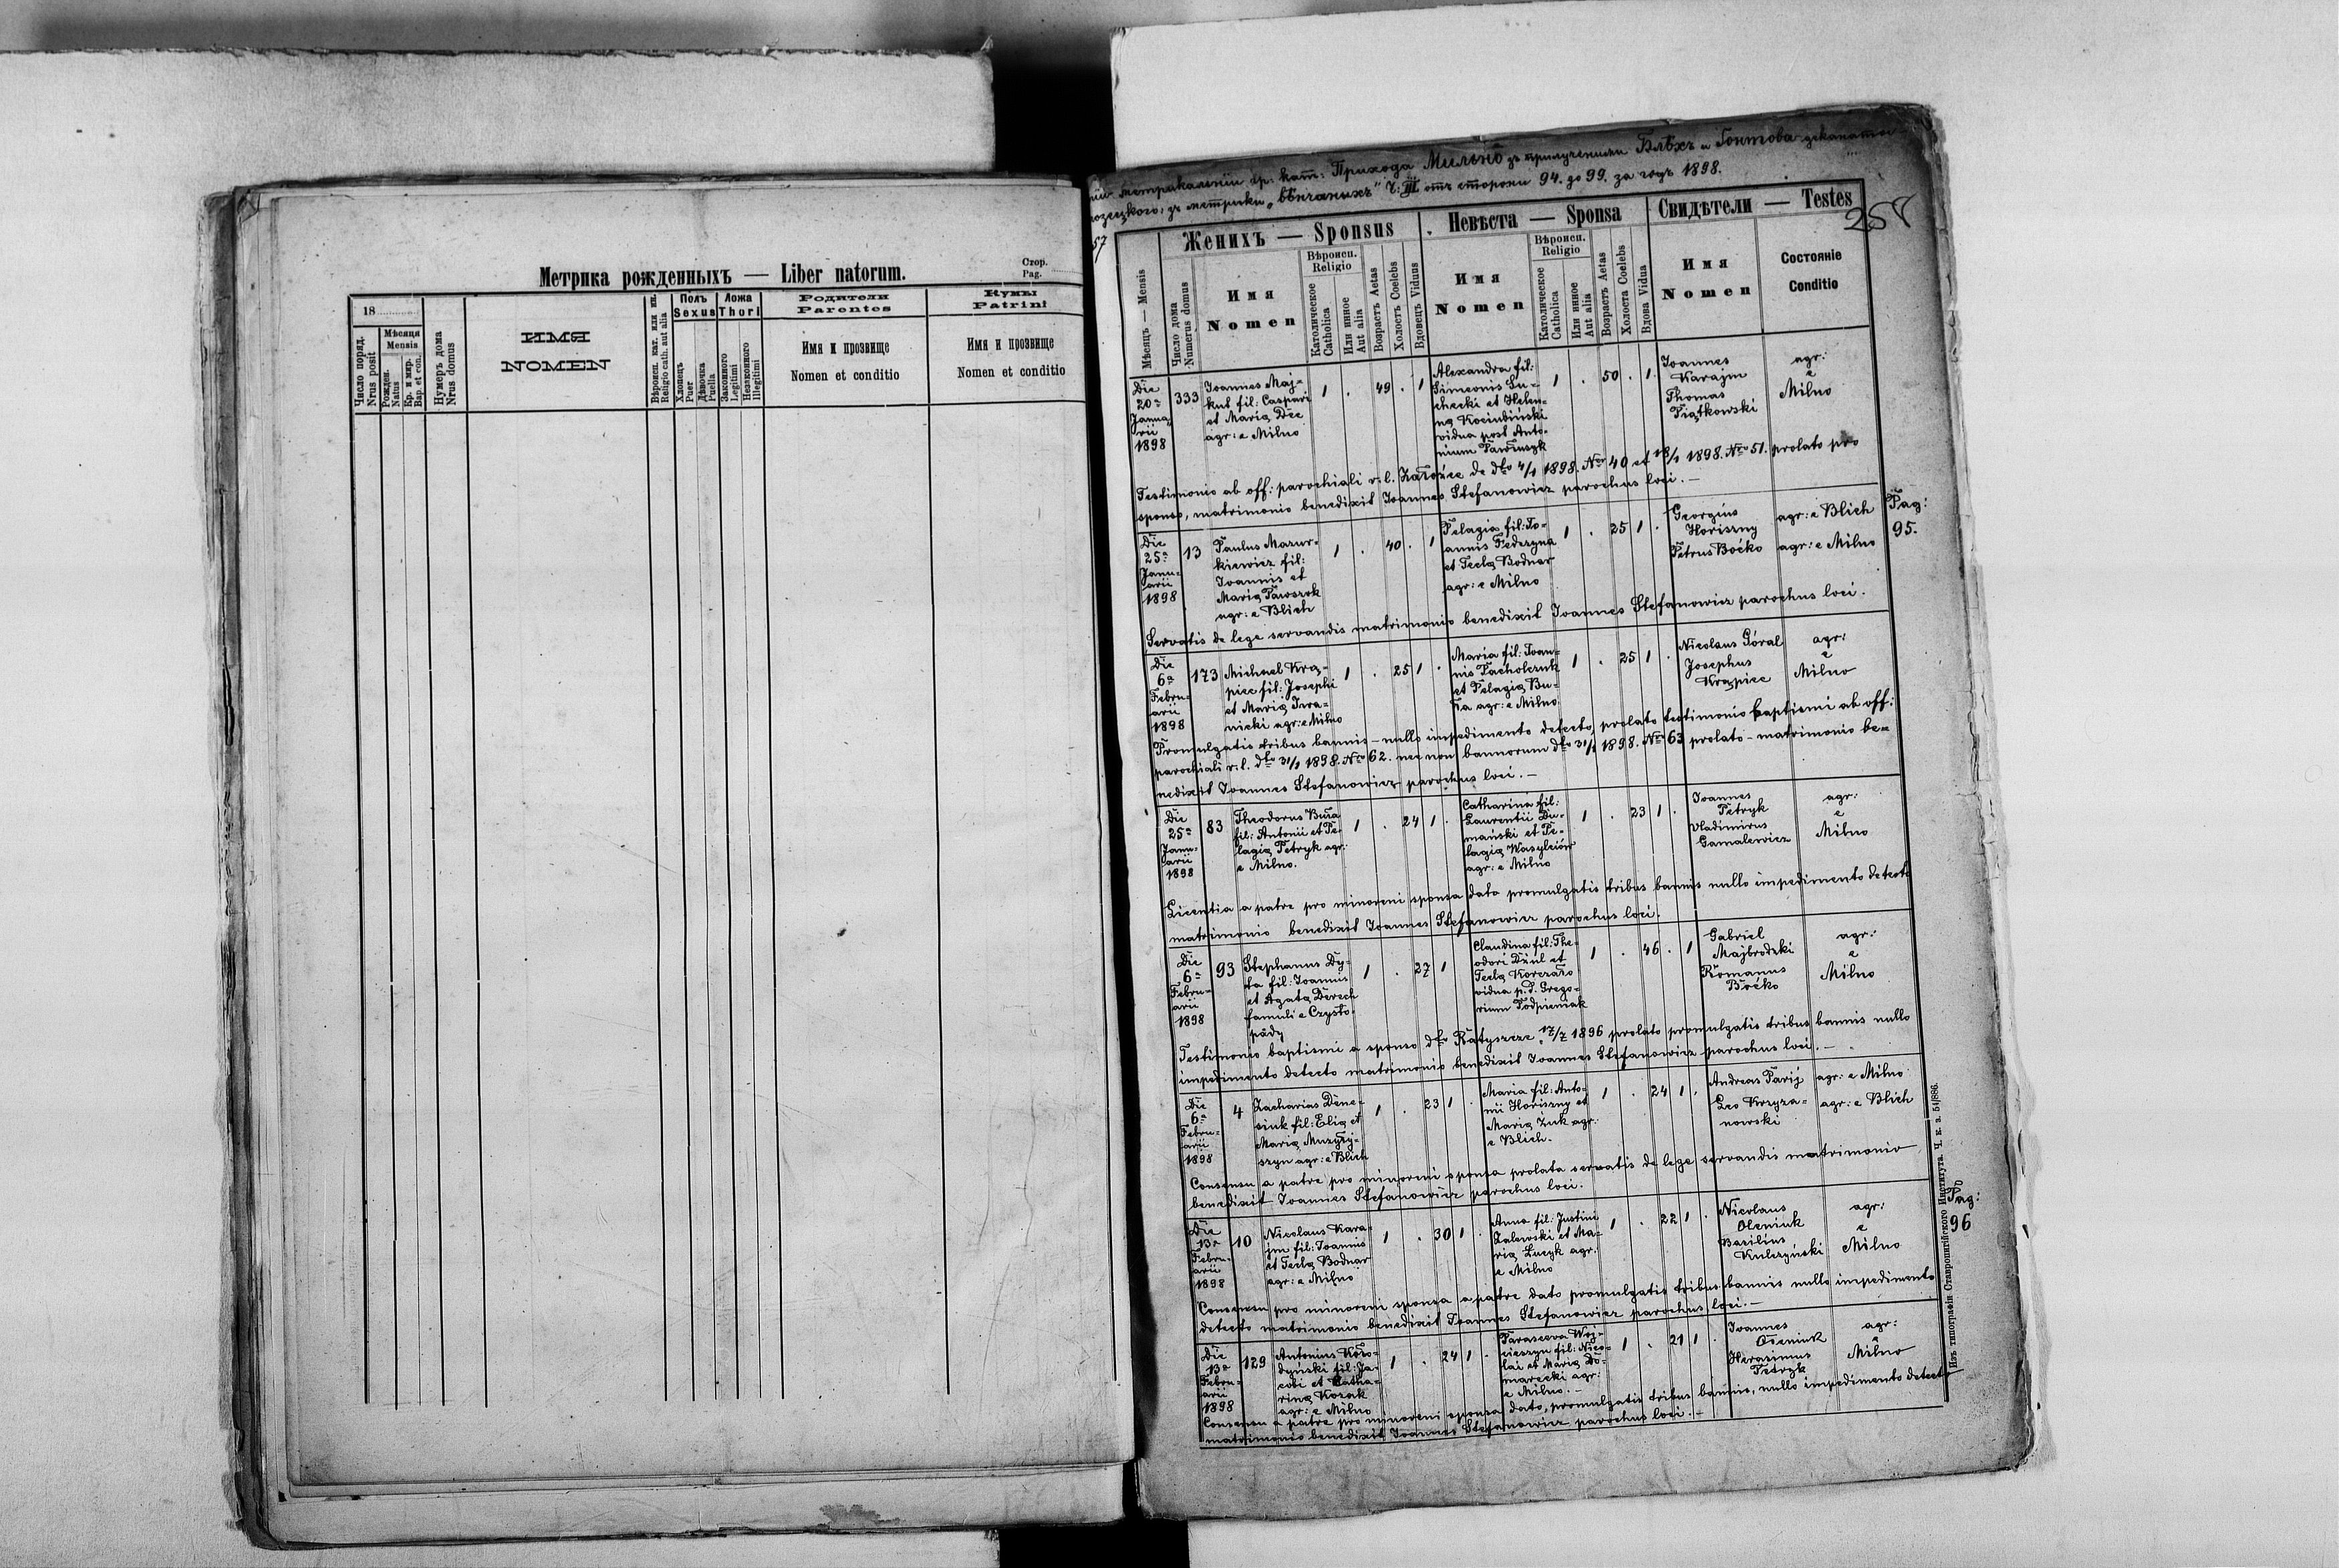 Метрика рожденныхъ — Liber natorum.
Стор.
Pag.
18
Число поряд.
Nrus posit
Мѣсяця
Mensis
Рожден.
Natus
Кр. и мир.
Bap. et con.
Нумеръ дома
Nrus domus
ИМЯ
NOMEN
Вѣроисп. кат. или ин.
Religio cath. aut alia
Полъ
Sexus
Хлопець
Puer
Дѣвочка
Puella
Ложа
Thori
Законного
Legitimi
Незаконного
Illegitimi
Родители
Parentes
Имя и прозвище
Nomen et conditio
Кумы
Patrini
Имя и прозвище
Nomen et conditio
метрикальніи гр. кат: Прихода Мильнô зъ прилученими Блѣхъ и Гонтова деканата
зъ метрики „вѣнчаныхъ" Ч: III отъ стороны 94. до 99. за годъ 1898.
257
57
Женихъ — Sponsus
Невѣста — Sponsa
Свидѣтели — Testes
Мѣсяць — Mensis
Число дома
Numerus domus
Имя
Nomen
Вѣроисп.
Religio
Католическое
Catholica
Или инное
Aut alia
Возрастъ Aetas
Холостъ Coelebs
Вдовецъ Viduus
Имя
Nomen
Вѣроисп.
Religio
Католическое
Catholica
Или инное
Aut alia
Возрастъ Aetas
Холоста Coelebs
Вдова Vidua
Имя
Nomen
Состоянiе
Conditio
Die
20ª
Janua-
rii
1898
333
Joannes Maj-
kut fil: Caspari
et Maria Dec
agr: e Milno
1 . 49 . 1
Alexandra fil:
Simeonis Su-
checki et Helen-
na Kociubiński
vidua post Anto-
nium Pawluszyk
1 . 50 . 1
Joannes
Karajm
Thomas
Piątkowski
agr:
e
Milno
Testimonio ab off: parochiali r. l. Załoźce de dto 4/1 1898. Nro 40 et 18/1 1898. Nro 51. prolato pro
sponso, matrimonio benedixit Joannes Stefanowicz parochus loci. —
Die
25ª
Janu-
arii
1898
13
Paulus Mazur-
kiewicz fil:
Joannis et
Maria Pawszok
agr: e Blich
1 . 40 . 1
Pelagia fil: Jo-
annis Federyna
et Tecla Bodnar
agr: e Milno
1 . 25 1 .
Georgius
Horiszny
Petrus Boćko
agr: e Blich
agr: e Milno
Pag:
95.
Servatis de lege servandis matrimonio benedixit Joannes Stefanowicz parochus loci.
Die
6ª
Febru-
arii
1898
173
Michael Kra-
piec fil: Josephi
et Maria Iwa-
nicki agr: e Milno
1 . 25 1 .
Maria fil: Joan-
nis Pacholczuk
et Pelagia Bu-
ła agr: e Milno
1 . 25 1 .
Nicolaus Góral
Josephus
Krapiec
agr:
e
Milno
Promulgatis tribus bannis — nullo impedimento detecto, prolato testimonio baptismi ab off:
parochiali r. l. dto 31/1 1898. Nro 62. nec non bannorum dto 31/1 1898. Nro 63 prolato — matrimonio be-
nedixit Joannes Stefanowicz parochus loci. —
Die
25ª
Janu-
arii
1898
83
Theodorus Buła
fil: Antonii et Pe-
lagia Petryk agr:
e Milno.
1 . 24 1 .
Catharina fil:
Laurentii Du-
mański et Pe-
lagia Wasylciów
agr: e Milno
1 . 23 1 .
Joannes
Petryk
Vladimirus
Gamalewicz
agr:
e
Milno
Licentia a patre pro minoreni sponsa dato promulgatis tribus bannis nullo impedimento detecto
matrimonio benedixit Joannes Stefanowicz parochus loci.
Die
6ª
Febru-
arii
1898
93
Stephanus Dy-
da fil: Joannis
et Agata Derech
famuli e Czysto-
pady
1 . 27 1
Claudina fil: The-
odori Dziul et
Tecla Korczało
vidua p. d. Grego-
rium Podpieniak
1 . 46 . 1
Gabriel
Majbrodzki
Romanus
Boćko
agr:
e
Milno
Testimonio baptismi a sponso dto Ratyszcze 17/7 1896 prolato promulgatis tribus bannis nullo
impedimento detecto matrimonio benedixit Joannes Stefanowicz parochus loci. —
Die
6ª
Febru-
arii
1898
4
Zacharias Dene-
siuk fil: Elia et
Maria Muzyły-
szyn agr: e Blich
1 . 23 1 .
Maria fil: Anto-
nii Horiszny et
Maria Zuk agr:
e Blich.
1 . 24 1 .
Andreas Parij
Leo Krzyża-
nowski
agr: e Milno
agr: e Blich
Consensu a patre pro minoreni sponsa prolata servatis de lege servandis matrimonio
benedixit Joannes Stefanowicz parochus loci.
Die
13ª
Febru-
arii
1898
10
Nicolaus Kara-
jm fil: Joannis
et Tecla Bodnar
agr: e Milno
1 . 30 1 .
Anna fil: Justini
Zalewski et Ma-
ria Lucyk agr:
e Milno
1 . 22 1 .
Nicolaus
Oleniuk
Basilius
Kulczyński
agr:
e
Milno
Pag:
96
Consensu pro minoreni sponsa a patre dato promulgatis tribus bannis nullo impedimento
detecto matrimonio benedixit Joannes Stefanowicz parochus loci. —
Die
13ª
Febru-
arii
1898
129
Antonius Koło-
dyński fil: Ja-
cobi et Catha-
rina Kozak
agr: e Milno
1 . 24 1 .
Parasceva Woj-
cieszyn fil: Nico-
lai et Maria Do-
marecki agr:
e Milno. —
1 . 21 1 .
Joannes
Oleniuk
Herasimus
Petryk
agr:
e
Milno
Consensu a patre pro minoreni sponsa dato, promulgatis tribus bannis, nullo impedimento detecto
matrimonio benedixit Joannes Stefanowicz parochus loci. —
Изъ типографiи Ставропигiйского Института. Ч. к. з. 51/886.